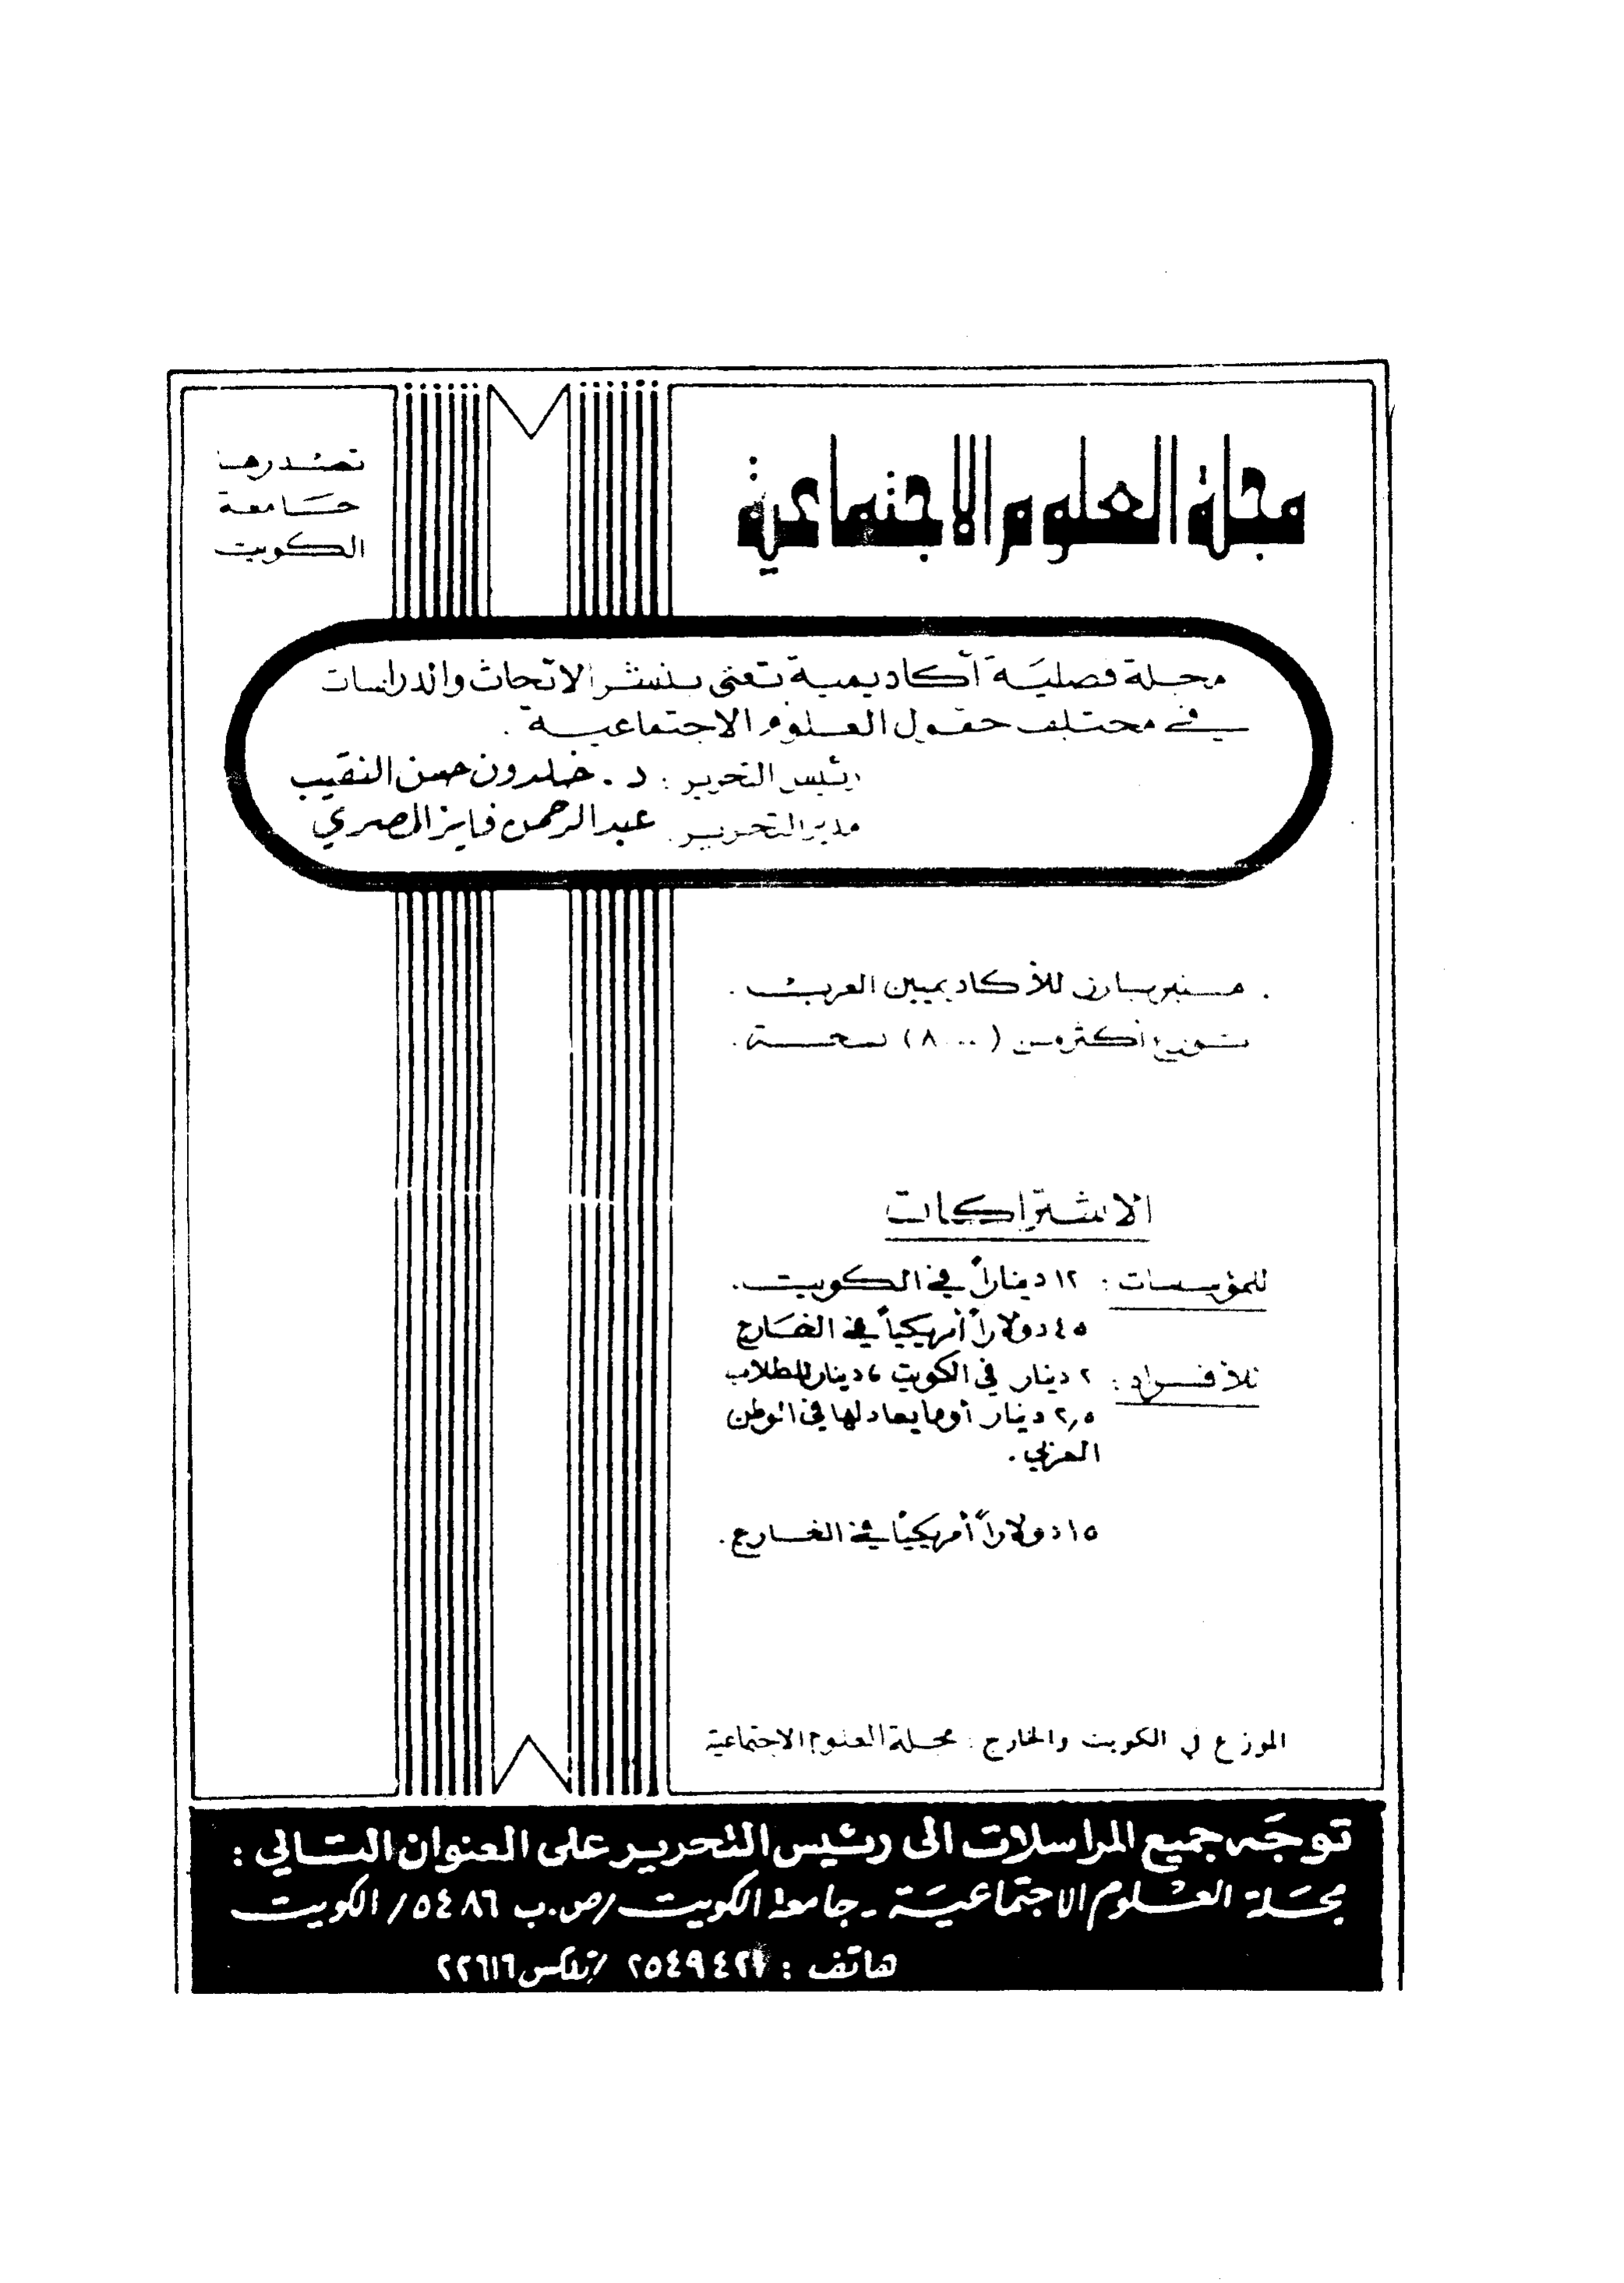 مجلة العلوم الاجتماعية
تصدرها
جامعة
الكويت
مجلة فصلية أكاديمية تعنى بنشر الأبحاث والدراسات
في مختلف حقول العلوم الاجتماعية .
رئيس التحرير : د . خلدون حسن النقيب
مدير التحرير . عبدالرحمن فايز المصري
. منبر بارز للأكاديميين العرب .
توزيع أكثر من (٨٠٠٠) نسخة .
الاشتراكات
للمؤسسات : ١٢ ديناراً في الكويت .
٤٥ دولاراً أمريكياً في الخارج
للأفراد : ٢ دينار في الكويت ، دينار للطلاب
٢,٥ دينار أو ما يعادلها في الوطن
العربي .
١٥ دولاراً أمريكياً في الخارج .
الموزع في الكويت والخارج : مجلة العلوم الاجتماعية
توجه جميع المراسلات الى رئيس التحرير على العنوان التالي :
مجلة العلوم الاجتماعية - جامعة الكويت / ص.ب ٥٤٨٦ / الكويت
هاتف : ٢٥٤٩٤٢١ / تلكس ٢٢٦١٦